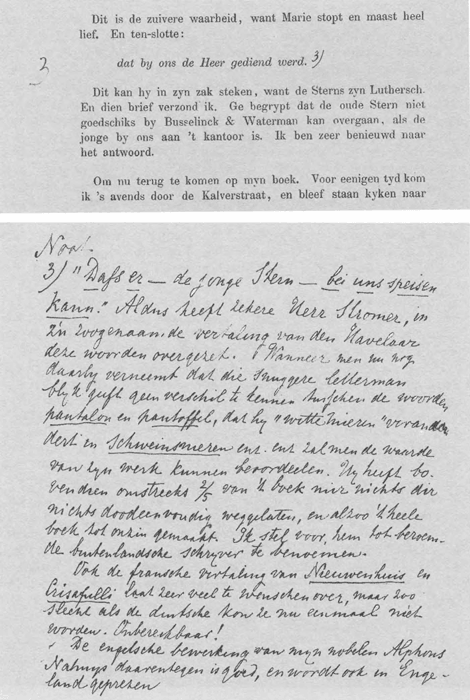 Dit is de zuivere waarheid, want Marie stopt en maast heel
lief. En ten-slotte:
dat by ons de Heer gediend werd. 3)
3
Dit kan hy in zyn zak steken, want de Sterns zyn Luthersch.
En dien brief verzond ik. Ge begrypt dat de oude Stern niet
goedschiks by Busselinck & Waterman kan overgaan, als de
jonge by ons aan 't kantoor is. Ik ben zeer benieuwd naar
het antwoord.
Om nu terug te komen op myn boek. Voor eenigen tyd kom
ik 's avends door de Kalverstraat, en bleef staan kyken naar
Noot.
3) "Dass er — de jonge Stern — bei uns speisen
kann." Aldus heeft zekere Herr Stromer, in
z'n zoogenaamde vertaling van den Havelaar
deze woorden overgezet. Wanneer men nu nog
daarby verneemt dat die snuggere letterman
blyk geeft geen verschil te kennen tusschen de woorden
pantalon en pantoffel, dat hy "witte mieren" veran
dert in Schweinsnieren enz. enz. zal men de waarde
van zyn werk kunnen beoordeelen. Hy heeft bo-
vendien omstreeks 2/5 van 't boek mir nichts dir
nichts doodeenvoudig weggelaten, en alzoo 't heele
boek tot onzin gemaakt. Ik stel voor hem tot beroem-
de buitenlandsche schryver te benoemen.
Ook de fransche vertaling van Nieuwenhuis en
Crisafulli laat zeer veel te wenschen over, maar zoo
slecht als de duitsche kon ze nu eenmaal niet
worden. Onbereikbaar!
De engelsche bewerking van myn nobelen Alphons
Nahuys daarentegen is goed, en wordt ook in Enge-
land geprezen